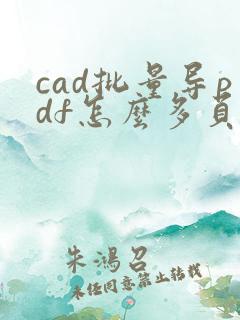 cad批量导p
df怎麼多頁
朱鴻召
未经同意禁止转载